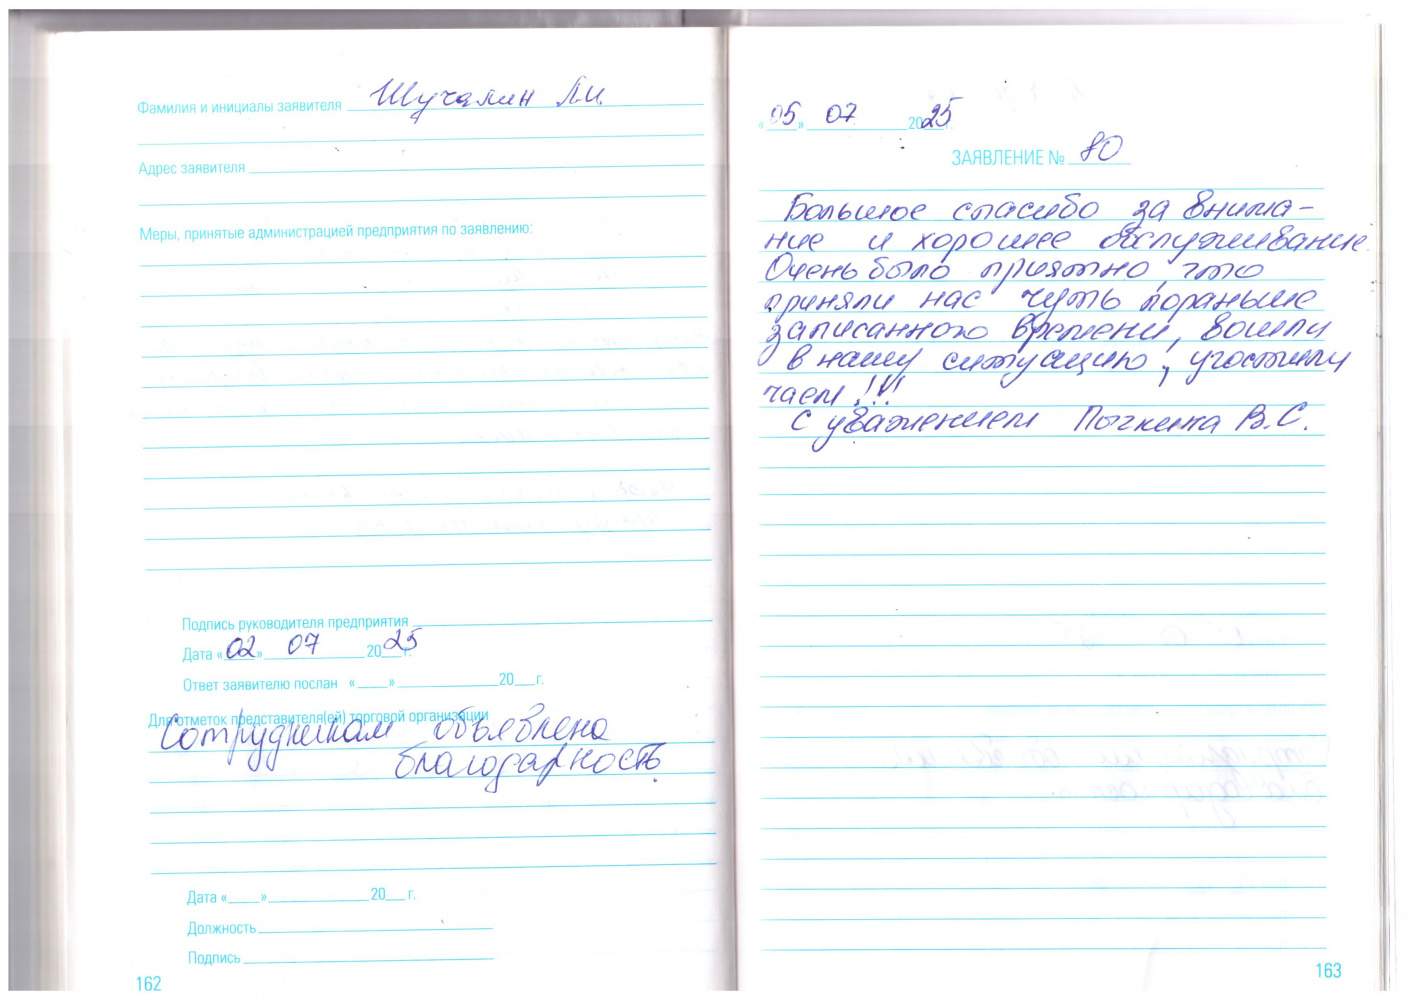 Фамилия и инициалы заявителя Шучалин Л.И.
Адрес заявителя
Меры, принятые администрацией предприятия по заявлению:
Подпись руководителя предприятия
Дата «02» 07 2025 г.
Ответ заявителю послан « » 20 г.
Для отметок представителя(ей) торговой организации
Сотрудникам объявлена
благодарность.
Дата « » 20 г.
Должность
Подпись
162
«05» 07 2025 г.
ЗАЯВЛЕНИЕ № 80
Большое спасибо за внима-
ние и хорошее обслуживание.
Очень было приятно, что
приняли нас чуть пораньше
записанного времени, вошли
в нашу ситуацию, угостили
чаем!!!
С уважением В.С.
163